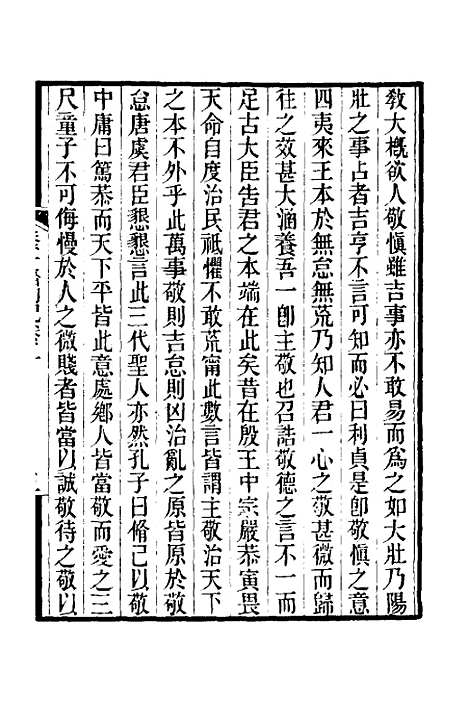 敎大槪欲人敬愼雖吉事亦不敢易而爲之如大壯乃陽
壯之事占者吉亨不言可知而必曰利貞是卽敬愼之意
四夷來王本於無怠無荒乃知人君一心之敬甚微而歸
往之效甚大涵養吾一卽主敬也召誥敬德之言不一而
足古大臣告君之本端在此矣昔在殷王中宗嚴恭寅畏
天命自度治民祗懼不敢荒甯此數言皆謂主敬治天下
之本不外乎此萬事敬則吉怠則凶治亂之原皆原於敬
怠唐虞君臣懇懇言此三代聖人亦然孔子曰脩己以敬
中庸曰篤恭而天下平皆此意處鄕人皆當敬而愛之三
尺童子不可侮慢於人之微賤者皆當以誠敬待之敬以